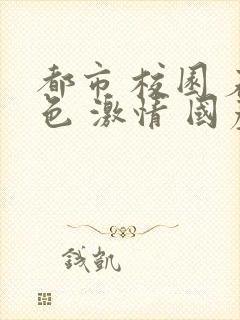 都市 校園
色 激情 國
錢凱